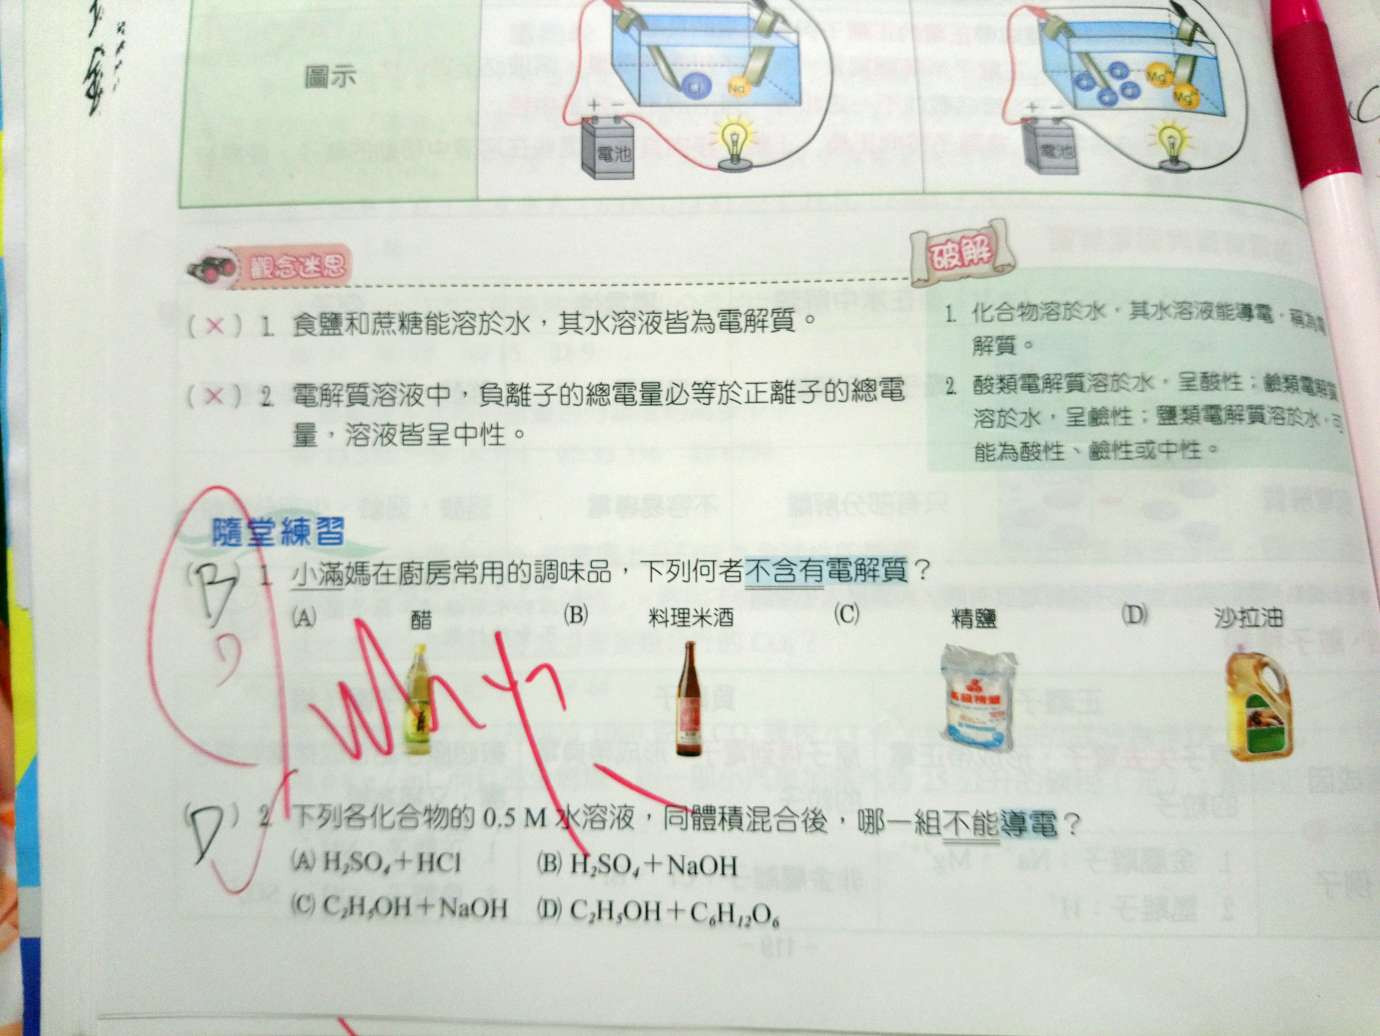 圖示
電池
電池
Na
Mg
Mg
觀念迷思
破解
(×) 1. 食鹽和蔗糖能溶於水，其水溶液皆為電解質。
(×) 2. 電解質溶液中，負離子的總電量必等於正離子的總電
量，溶液皆呈中性。
1. 化合物溶於水，其水溶液能導電，稱為電
解質。
2. 酸類電解質溶於水，呈酸性；鹼類電解質
溶於水，呈鹼性；鹽類電解質溶於水，可
能為酸性、鹼性或中性。
隨堂練習
(B) 1. 小滿媽在廚房常用的調味品，下列何者不含有電解質？
(A) 醋 (B) 料理米酒 (C) 精鹽 (D) 沙拉油
Why
(D) 2. 下列各化合物的 0.5 M 水溶液，同體積混合後，哪一組不能導電？
(A) H₂SO₄＋HCl (B) H₂SO₄＋NaOH
(C) C₂H₅OH＋NaOH (D) C₂H₅OH＋C₆H₁₂O₆